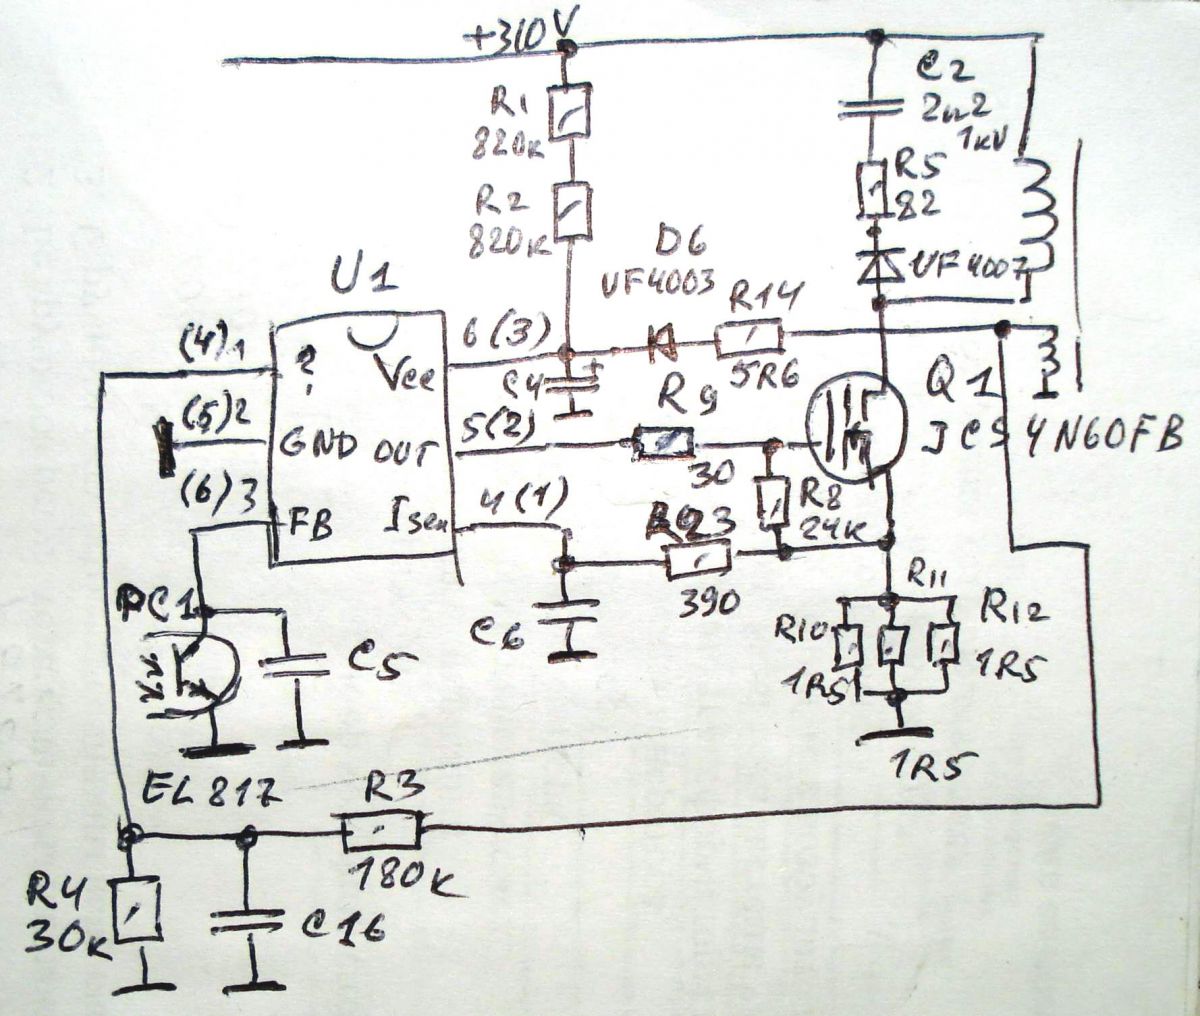 +310V
C2
2n2
1kV
R1
820к
R5
82
R2
820к
UF4007
D6
UF4003
R14
5R6
U1
(4)1
?
Vcc
6(3)
C4
(5)2
GND
OUT
5(2)
R9
30
Q1
JCS 4N60FB
(6)3
FB
Isen
4(1)
R8
24K
390
C6
R11
R10
1R5
R12
1R5
1R5
PC1
C5
EL817
R3
180к
R4
30к
C16